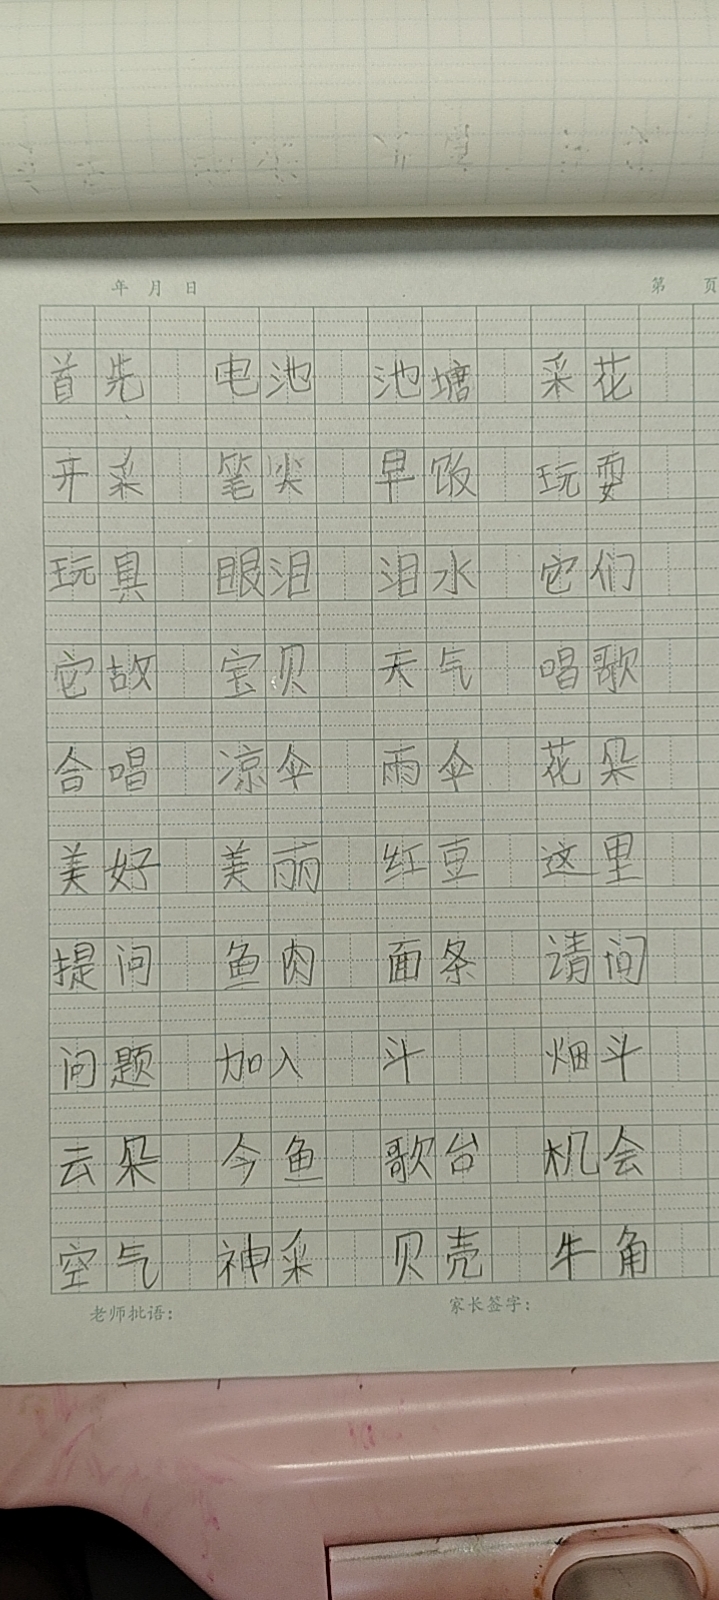 年 月 日 第 页
首先 电池 池塘 采花
开采 笔尖 早饭 玩耍
玩具 眼泪 泪水 它们
它故 宝贝 天气 唱歌
合唱 凉伞 雨伞 花朵
美好 美丽 红豆 这里
提问 鱼肉 面条 请问
问题 加入 斗 烟斗
云朵 今鱼 歌台 机会
空气 神采 贝壳 牛角
老师批语: 家长签字: